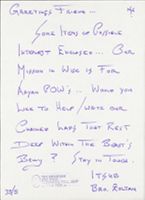 Greetings Friend...
Some Items of Possible
Interest Enclosed... Our
Mission in Wise is For
Aryan POW's... Would you
Like to Help/Write our
Captured Lads That Rest
Deep Within The Beast's
Belly? Stay in Touch.
Bro. Zoltan